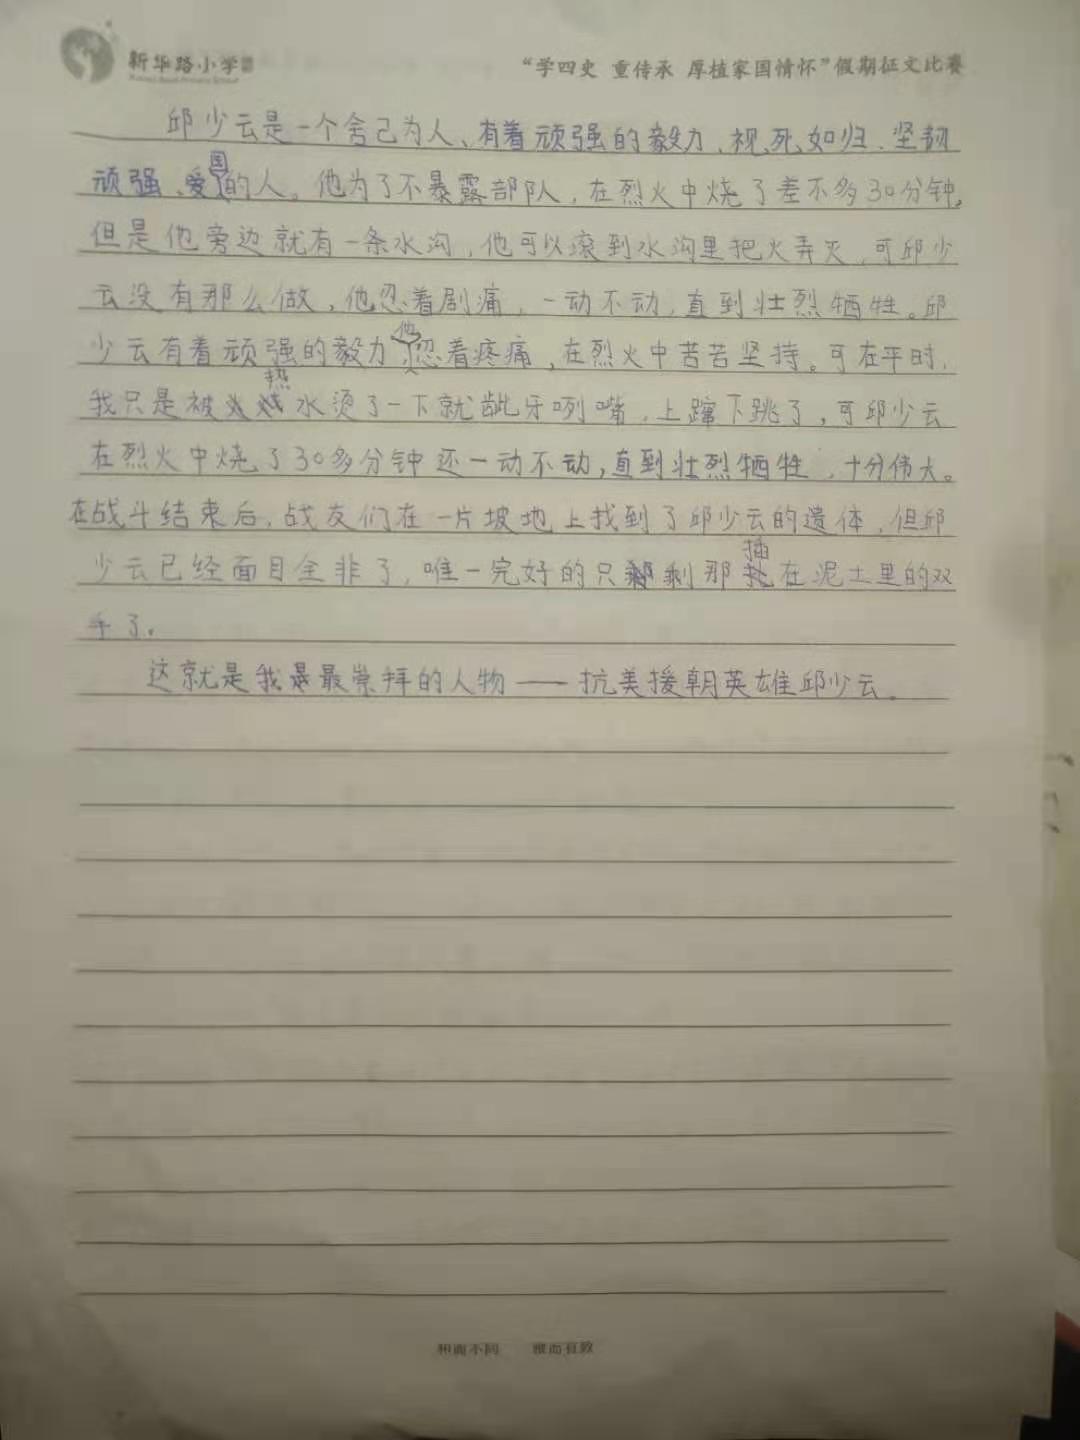 新华路小学
“学四史 重传承 厚植家国情怀”假期征文比赛
邱少云是一个舍己为人、有着顽强的毅力、视死如归、坚韧
顽强、爱国的人。他为了不暴露部队，在烈火中烧了差不多30分钟，
但是他旁边就有一条水沟，他可以滚到水沟里把火弄灭，可邱少
云没有那么做，他忍着剧痛，一动不动，直到壮烈牺牲。邱
少云有着顽强的毅力，他忍着疼痛，在烈火中苦苦坚持。可在平时，
我只是被热水烫了一下就龇牙咧嘴，上蹿下跳了，可邱少云
在烈火中烧了30多分钟还一动不动，直到壮烈牺牲，十分伟大。
在战斗结束后，战友们在一片坡地上找到了邱少云的遗体，但邱
少云已经面目全非了，唯一完好的只剩那插在泥土里的双
手了。
这就是我最崇拜的人物——抗美援朝英雄邱少云。
和而不同 雅而有致